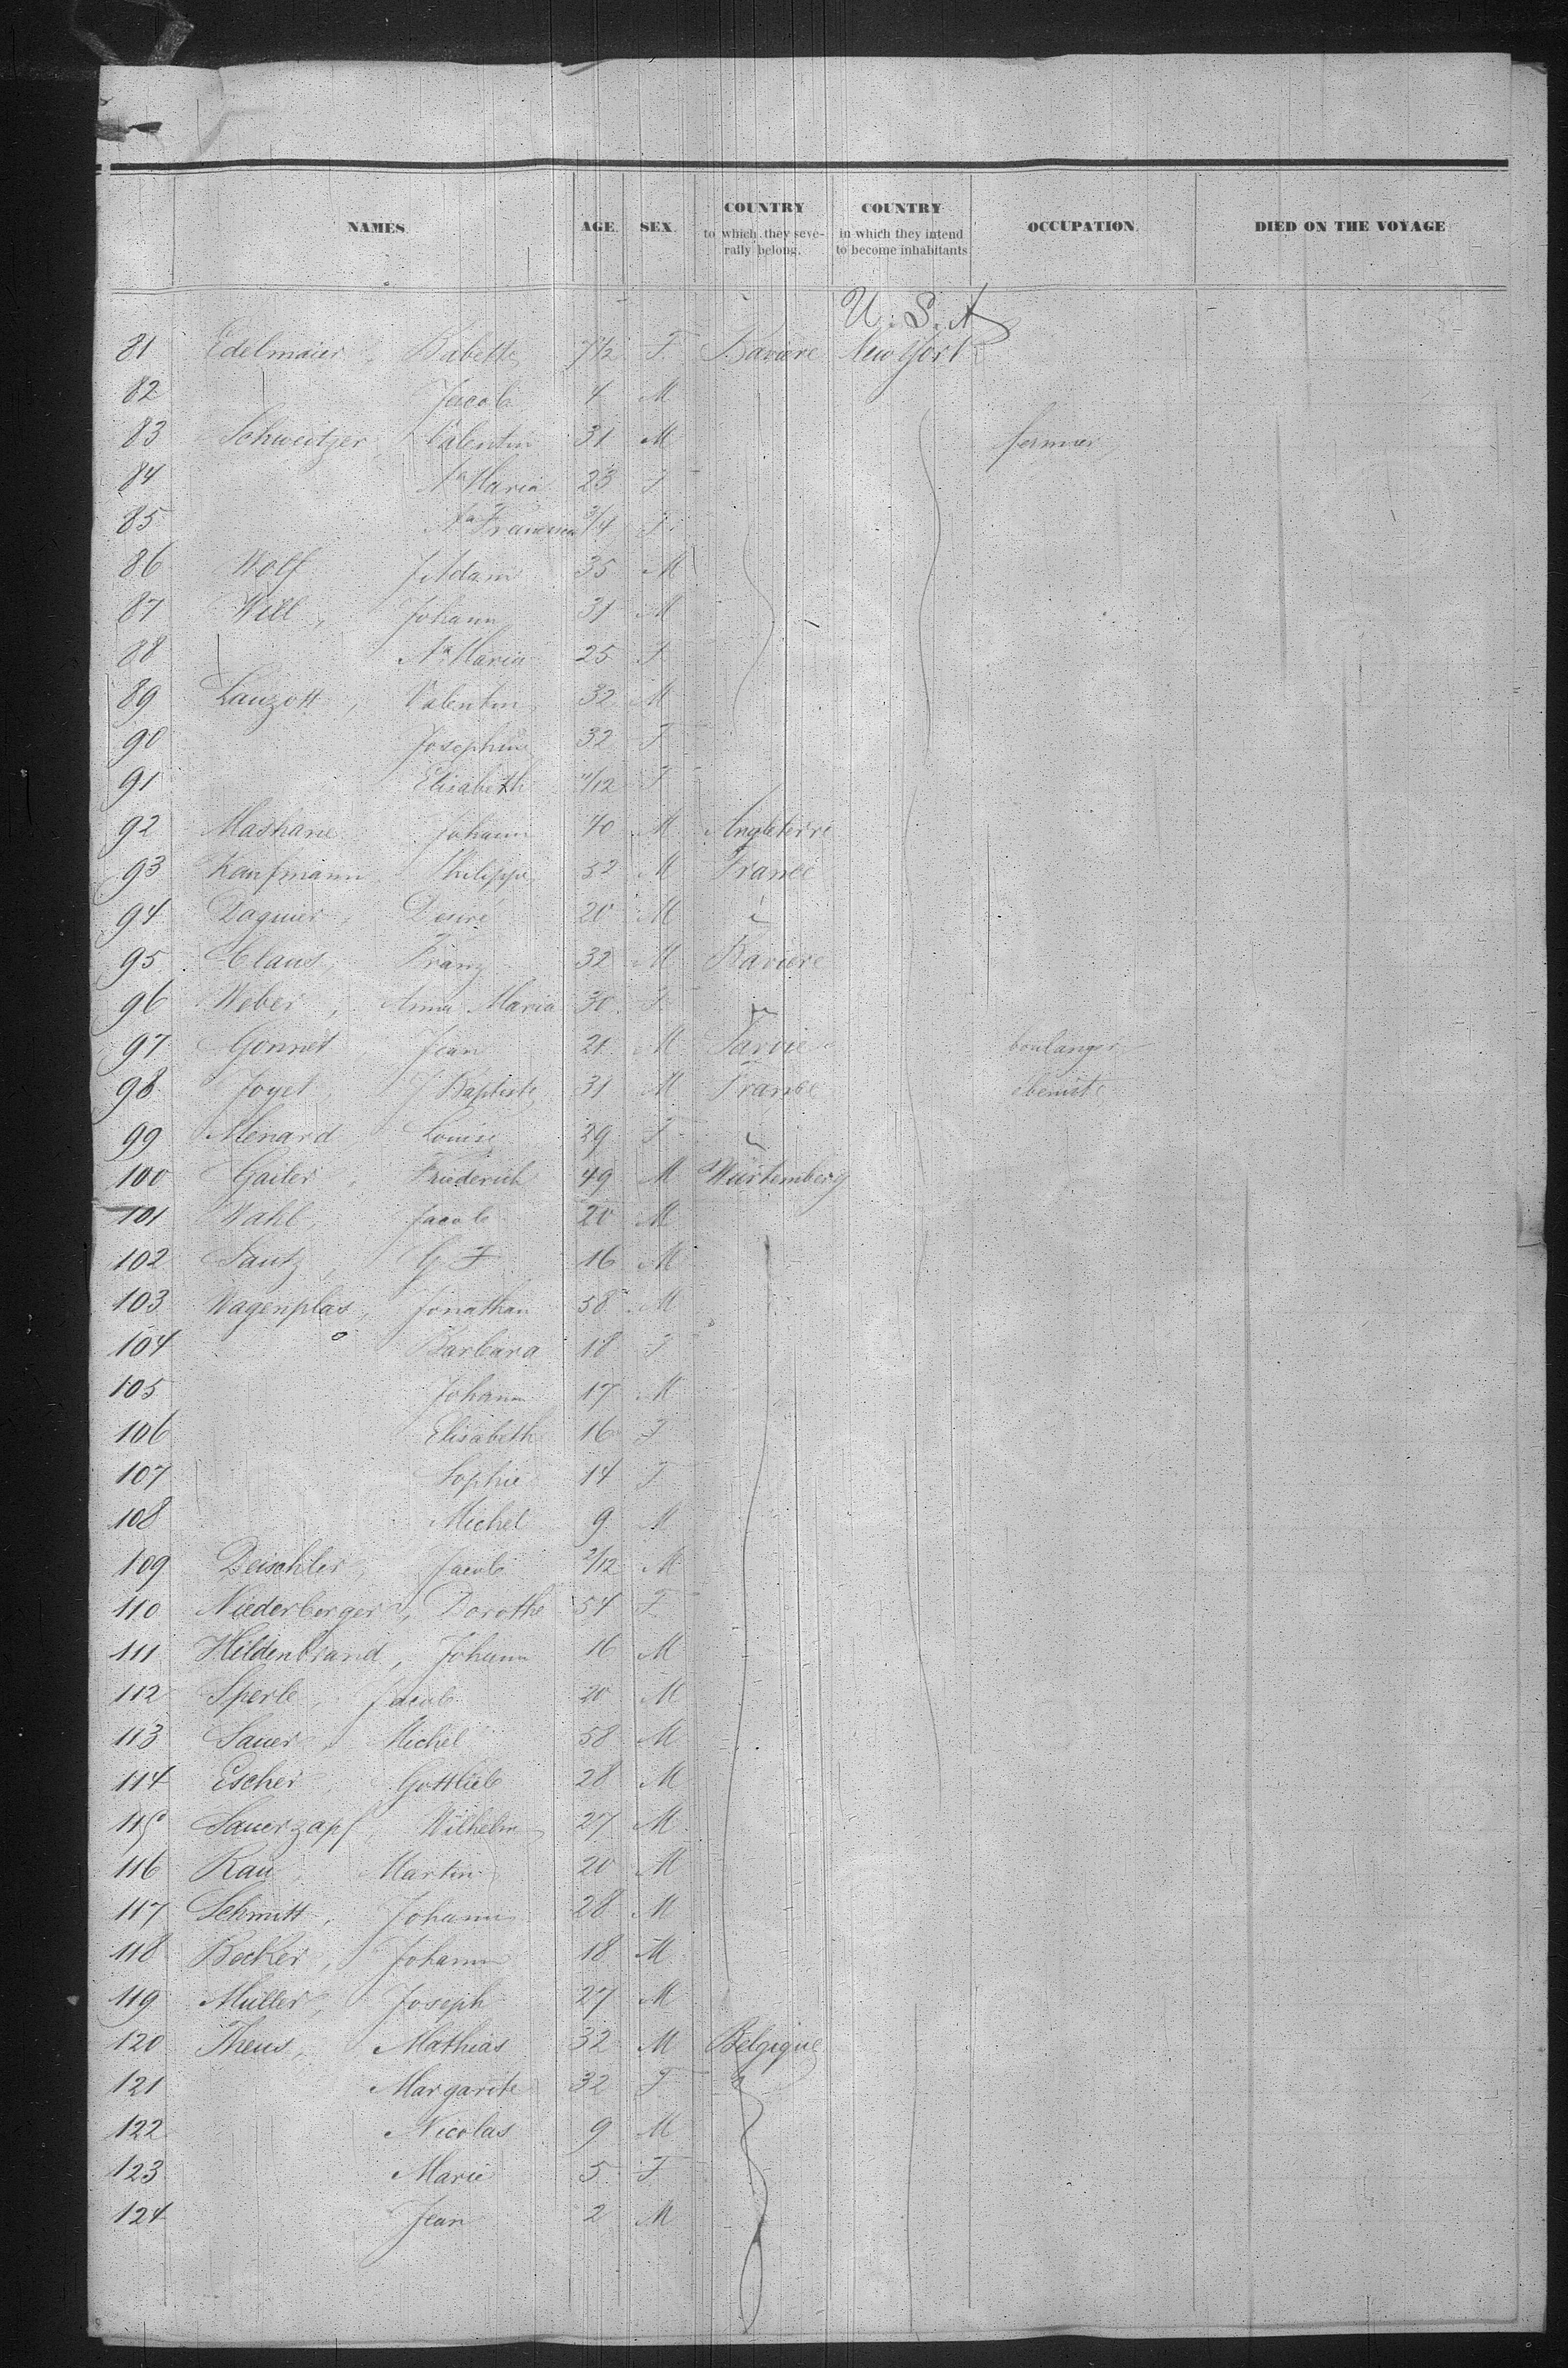 NAMES. AGE. SEX. COUNTRY to which they severally belong. COUNTRY in which they intend to become inhabitants OCCUPATION. DIED ON THE VOYAGE
U. S. A
81 Edelmaier, Babette 7½ F Baviere New York
82 Jacob 4 M
83 Schweitzer Valentin 31 M fermier
84 Aa Maria 23 F
85 Aa 3/4 F
86 Wolf J Adam 35 M
87 Will, Johann 31 M
88 Aa Maria 25 F
89 Lauzott, Valentin 32 M
90 Josephine 32 F
91 Elisabeth 11/12 F
92 Johann 40 M Angleterre
93 Kaufmann Philippe 32 M France
94 Desiré 20 M "
95 Claus, Franz 32 M Baviere
96 Weber, Anna Maria 30 F "
97 Gonnet, Jean 21 M boulanger
98 Joyet, J Baptiste 31 M France ebeniste
99 Menard, Louise 29 F "
100 Gailer, Friederich 49 M Würtemberg
101 Wahl, Jacob 20 M
102 G F 16 M
103 Wagenplas, Jonathan 58 M
104 Barbara 18 F
105 Johann 17 M
106 Elisabeth 16 F
107 Sophie 14 F
108 Michel 9 M
109 Deischler, Jacob 2/12 M
110 Niederberger, Dorothe 54 F
111 Hildenbrand, Johann 16 M
112 Sperle, Jacob 20 M
113 Sauer, Michel 58 M
114 Escher, Gottlieb 28 M
115 Sauerzapf, Wilhelm 27 M
116 Rau, Martin 20 M
117 Schmitt, Johann 28 M
118 Becker, Johann 18 M
119 Müller, Joseph 27 M
120 Theus, Mathias 32 M Belgique
121 Margarite 32 F
122 Nicolas 9 M
123 Marie 5 F
124 Jean 2 M